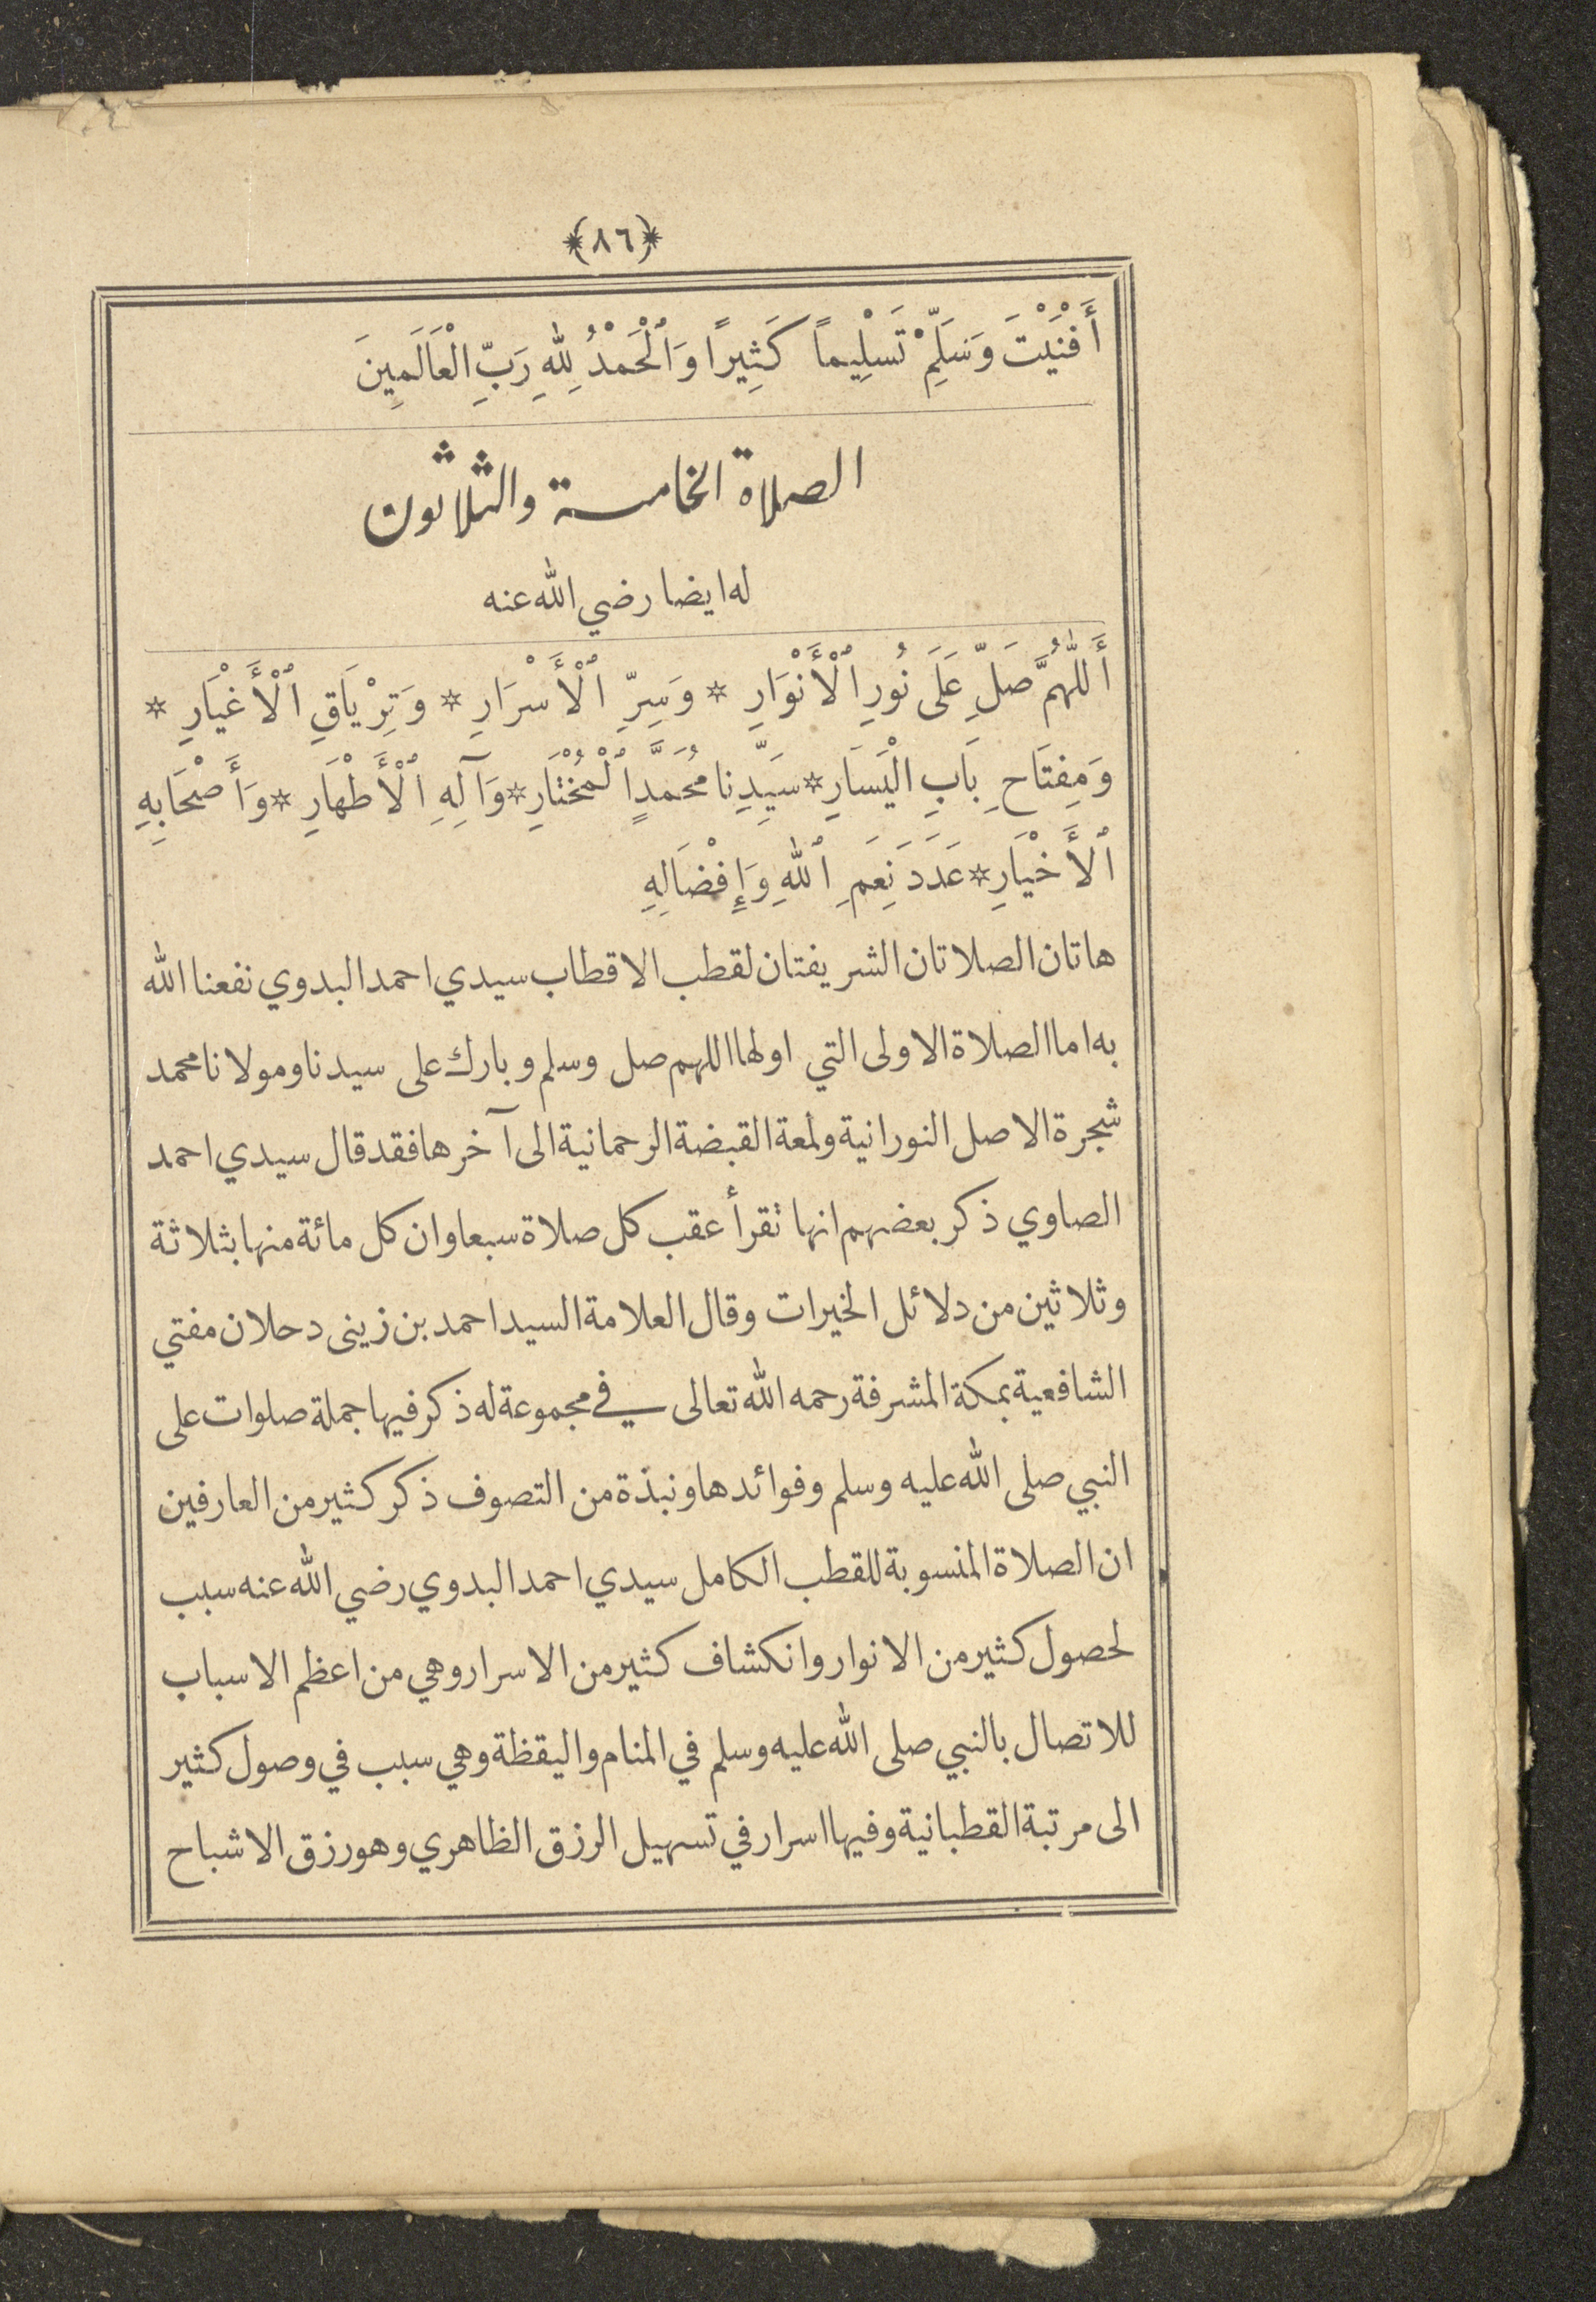 ﴿٨٦﴾
أَفْنَيْتَ وَسَلِّمْ تَسْلِيماً كَثِيرًا وَٱلْحَمْدُ لِلهِ رَبِّ الْعَالَمِينَ
الصلاة الخامسة والثلاثون
له ايضا رضي الله عنه
أَللّٰهُمَّ صَلِّ عَلَى نُورِ ٱلْأَنْوَارِ * وَسِرِّ ٱلْأَسْرَارِ * وَتِرْيَاقِ ٱلْأَغْيَارِ *
وَمِفتَاحِ بَابِ الْيَسَارِ * سَيِّدِنا مُحَمَّدٍ ٱلْمُخْتَارِ * وَآلِهِ ٱلْأَطْهَارِ * وَأَصْحَابِهِ
ٱلأَخْيَارِ * عَدَدَ نِعَمِ ٱللهِ وَإِفْضَالِهِ
هاتان الصلاتان الشريفتان لقطب الاقطاب سيدي احمد البدوي نفعنا الله
به اما الصلاة الاولى التي اولها اللهم صل وسلم وبارك على سيدنا ومولانا محمد
شجرة الاصل النورانية ولمعة القبضة الرحمانية الى آخرها فقد قال سيدي احمد
الصاوي ذكر بعضهم انها تقرأ عقب كل صلاة سبعا وان كل مائة منها بثلاثة
وثلاثين من دلائل الخيرات وقال العلامة السيد احمد بن زينى دحلان مفتي
الشافعية بمكة المشرفة رحمه الله تعالى في مجموعة له ذكر فيها جملة صلوات على
النبي صلى الله عليه وسلم وفوائدها ونبذة من التصوف ذكر كثير من العارفين
ان الصلاة المنسوبة للقطب الكامل سيدي احمد البدوي رضي الله عنه سبب
لحصول كثير من الانوار وانكشاف كثير من الاسرار وهي من اعظم الاسباب
للاتصال بالنبي صلى الله عليه وسلم في المنام واليقظة وهي سبب في وصول كثير
الى مرتبة القطبانية وفيها اسرار في تسهيل الرزق الظاهري وهو رزق الاشباح